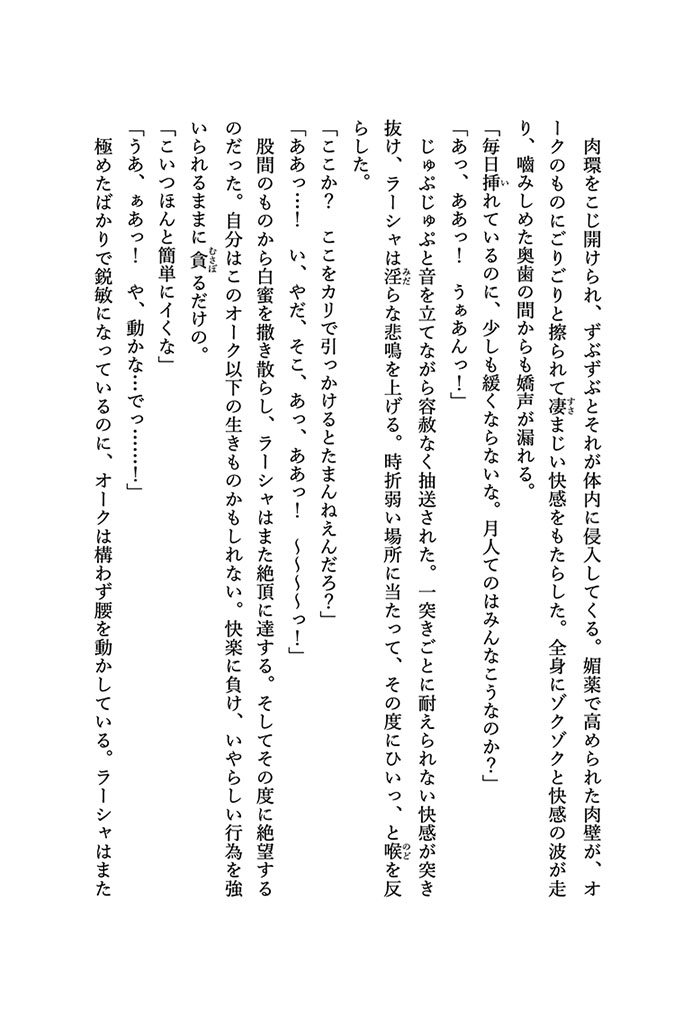 肉環をこじ開けられ、ずぶずぶとそれが体内に侵入してくる。媚薬で高められた肉壁が、オ
ークのものにごりごりと擦られて凄まじい快感をもたらした。全身にゾクゾクと快感の波が走
り、嚙みしめた奥歯の間からも嬌声が漏れる。
「毎日挿れているのに、少しも緩くならないな。月人てのはみんなこうなのか？」
「あっ、ああっ！　うぁあんっ！」
じゅぷじゅぷと音を立てながら容赦なく抽送された。一突きごとに耐えられない快感が突き
抜け、ラーシャは淫らな悲鳴を上げる。時折弱い場所に当たって、その度にひいっ、と喉を反
らした。
「ここか？　ここをカリで引っかけるとたまんねえんだろ？」
「ああっ…！　い、やだ、そこ、あっ、ああっ！　～～～～っ！」
股間のものから白蜜を撒き散らし、ラーシャはまた絶頂に達する。そしてその度に絶望する
のだった。自分はこのオーク以下の生きものかもしれない。快楽に負け、いやらしい行為を強
いられるままに貪るだけの。
「こいつほんと簡単にイくな」
「うあ、ぁあっ！　や、動かな…でっ……！」
極めたばかりで鋭敏になっているのに、オークは構わず腰を動かしている。ラーシャはまた